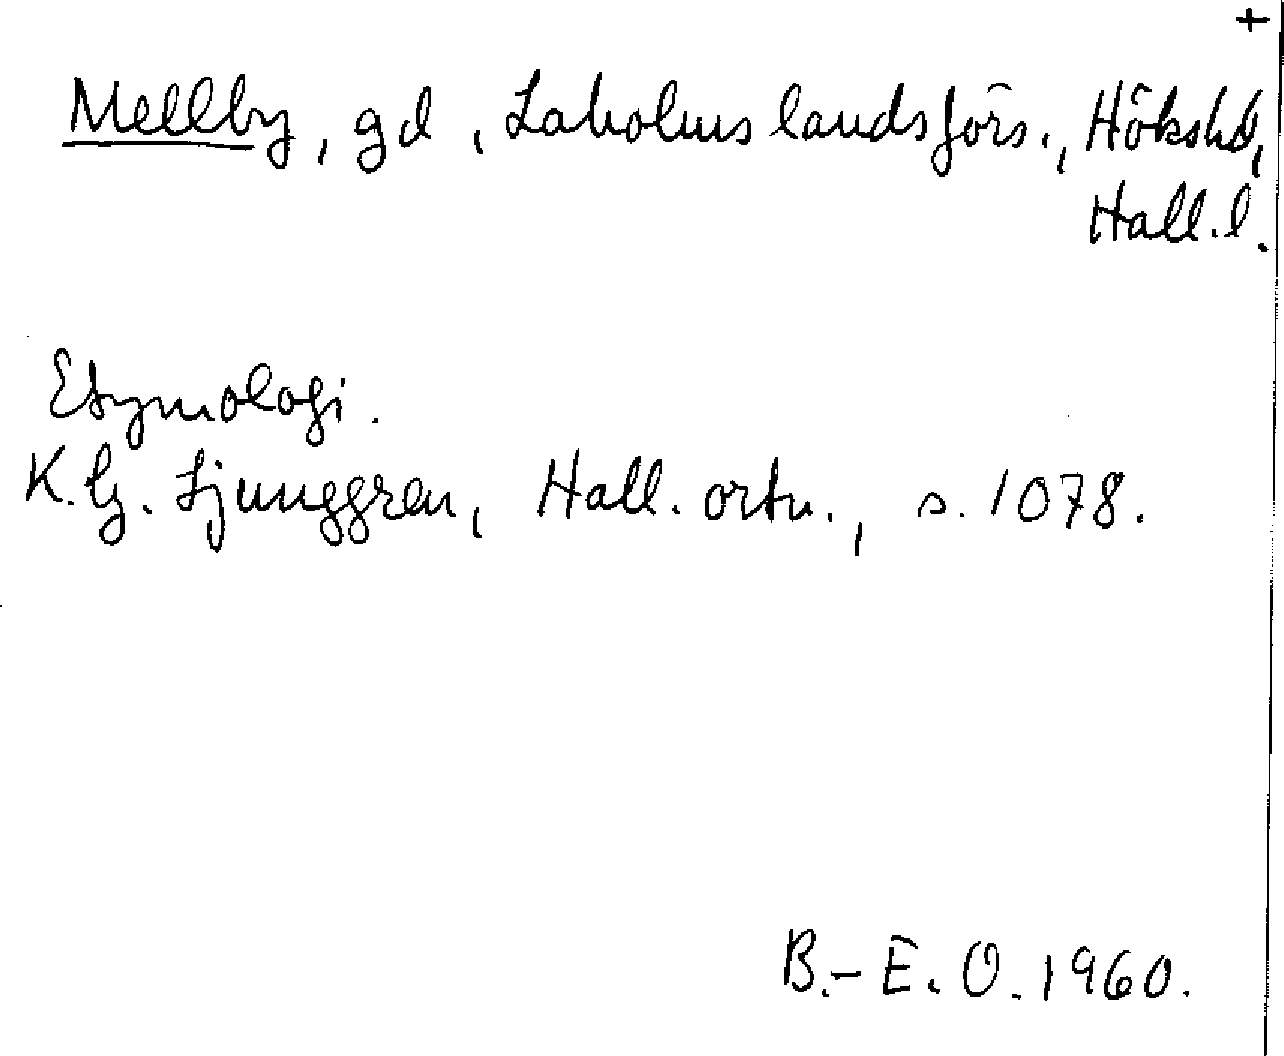 +
Mellby, gd, Laholms landsförs., Hökshd,
Hall.l.
Etymologi.
K.G. Ljunggren, Hall. ortn., s. 1078.
B.-E. O. 1960.